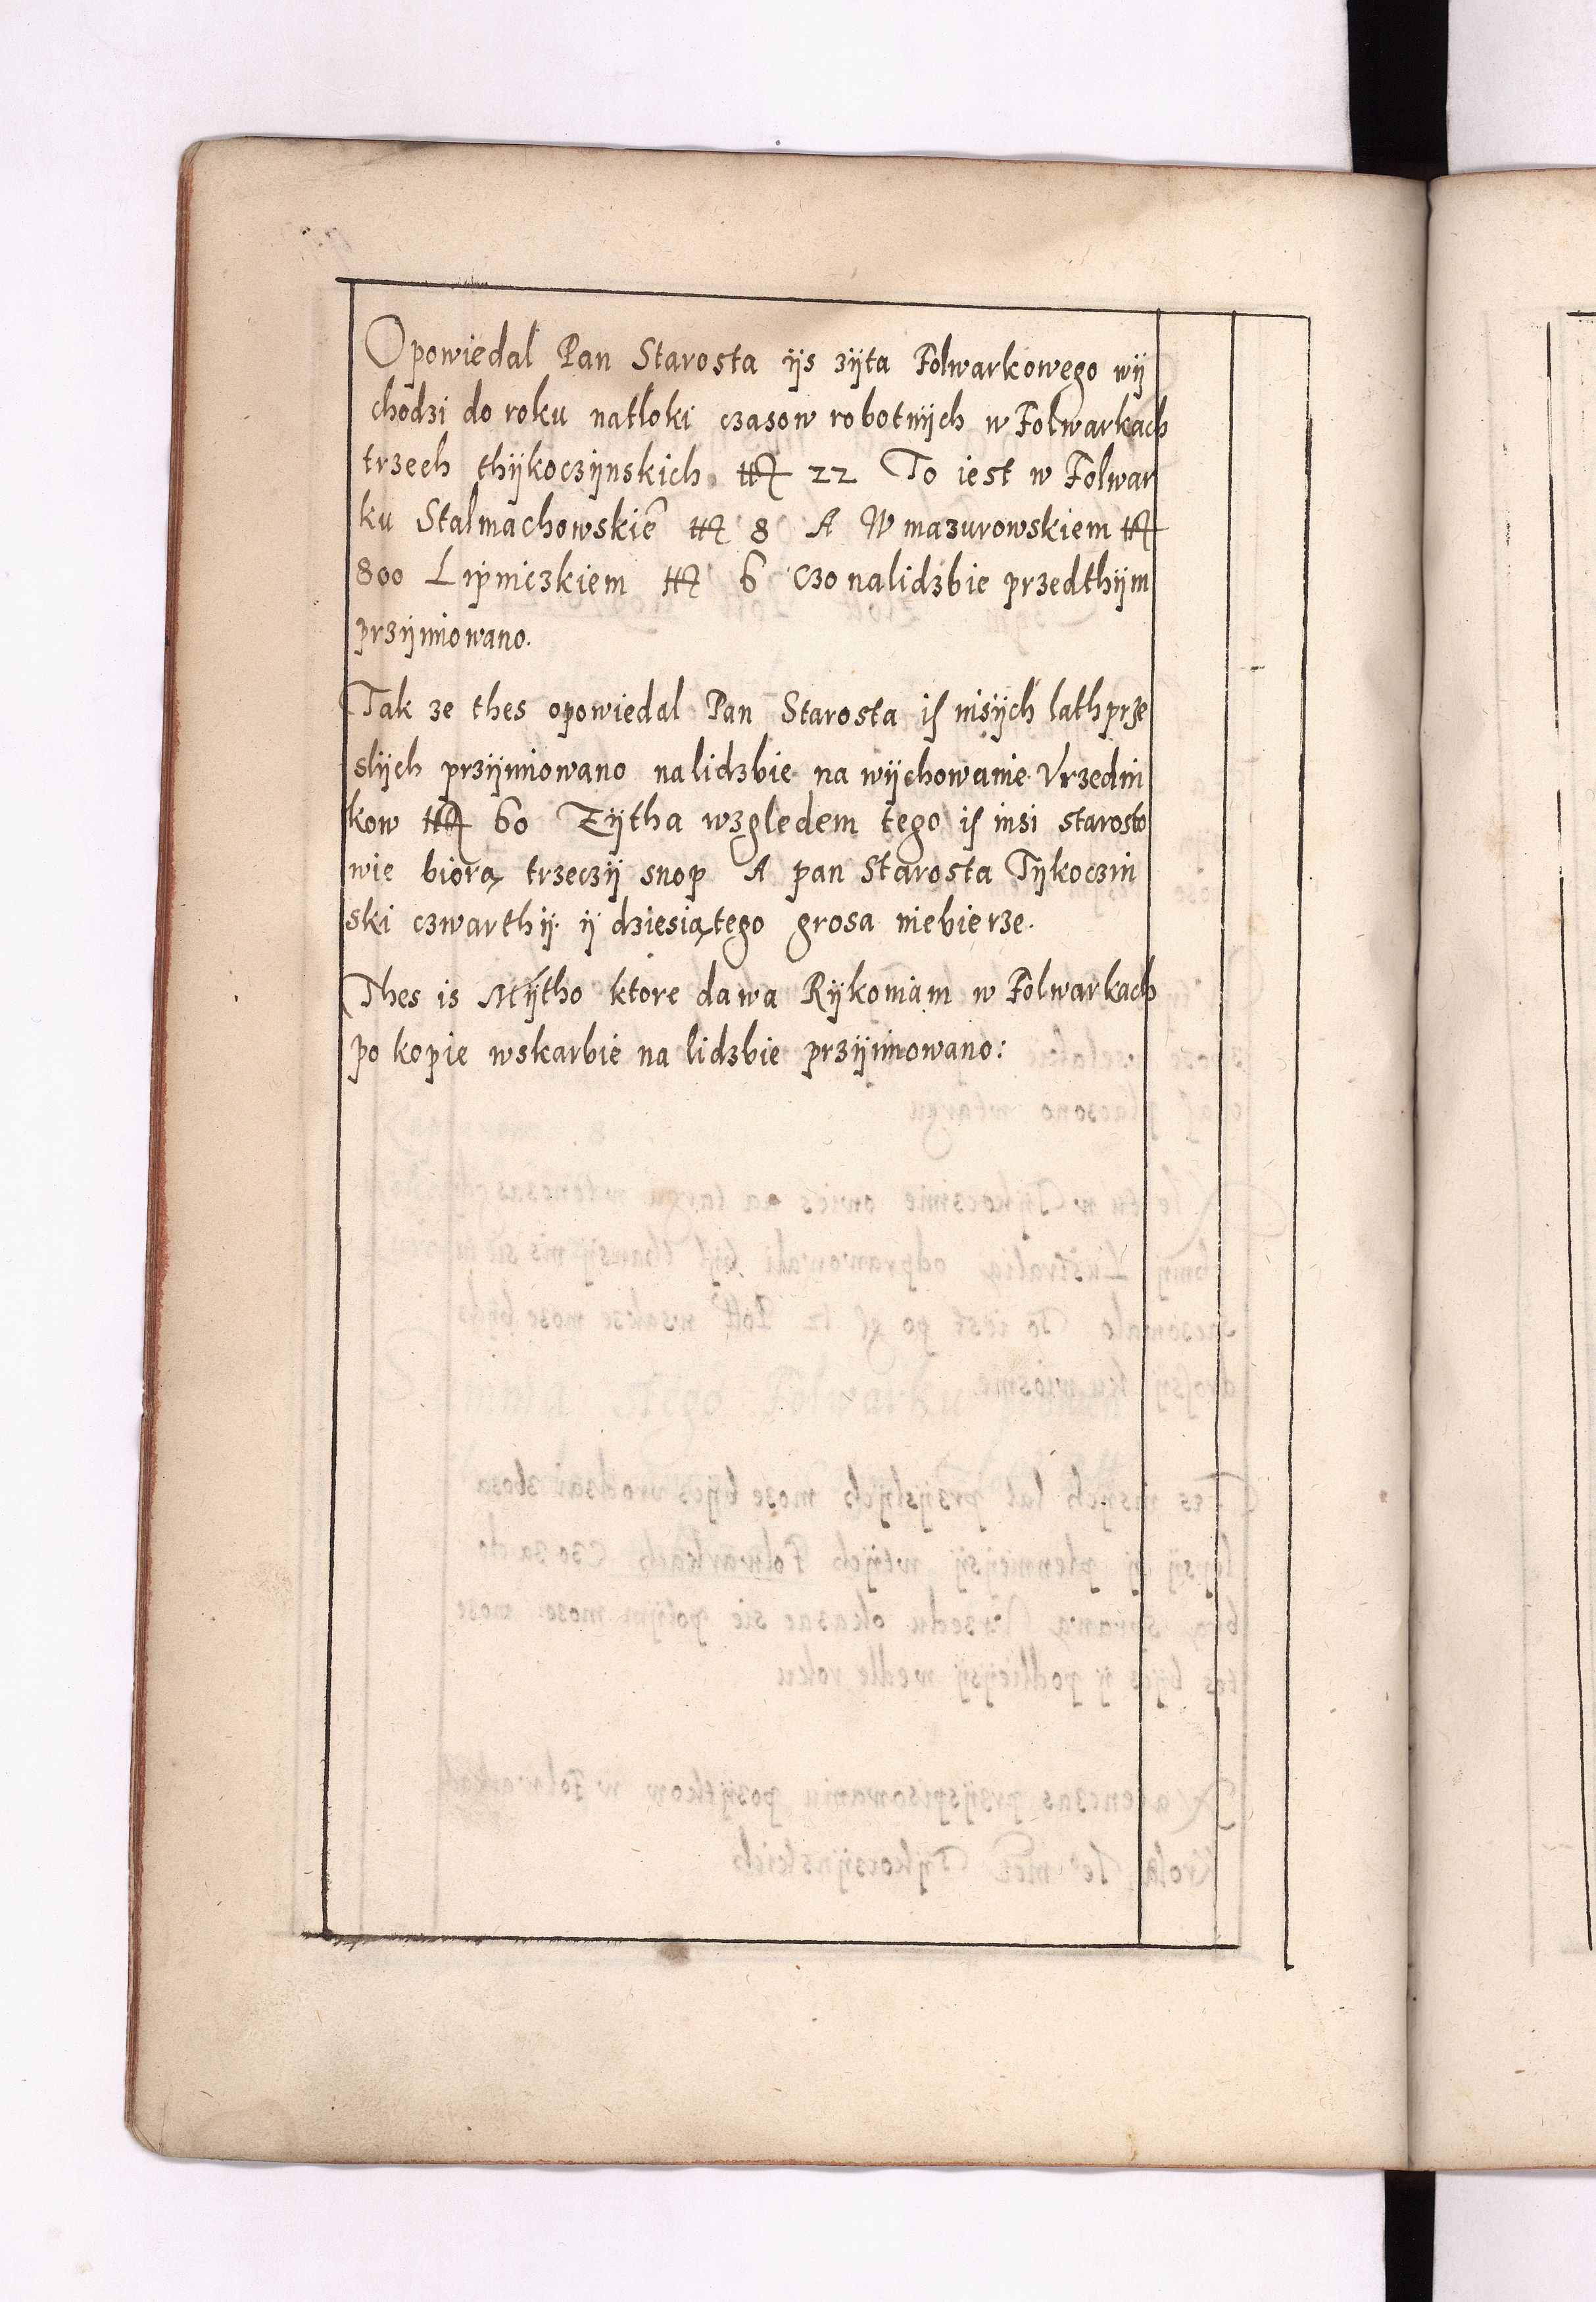 Opowiedal Pan Starosta ijs zijta Folwarkowego wij
chodzi do roku natloki czasow robotnijch w Folwarkach
trzech thijkoczijnskich 22 To iest w Folwar
ku Stalmachowskiē 8 A W mazurowskiem
800 Lipniczkiem 6 Czo nalidzbie przedthijm
przijmowano.
Tak ze thes opowiedal Pan Starosta iſ insijch lath prze
slijch przijmiowano nalidzbie na wijchowanie Vrzedni
kow 60 Zijtha wzgledem tego iſ insi starosto
wie biorą trzeczij snop A pan Starosta Tijkoczin
ski czwarthij ij dziesiątego grosa niebierze.
Thes is Mijtho ktore dawa Rijkoniam w Folwarkach
po kopie wskarbie na lidzbie przijimowano: